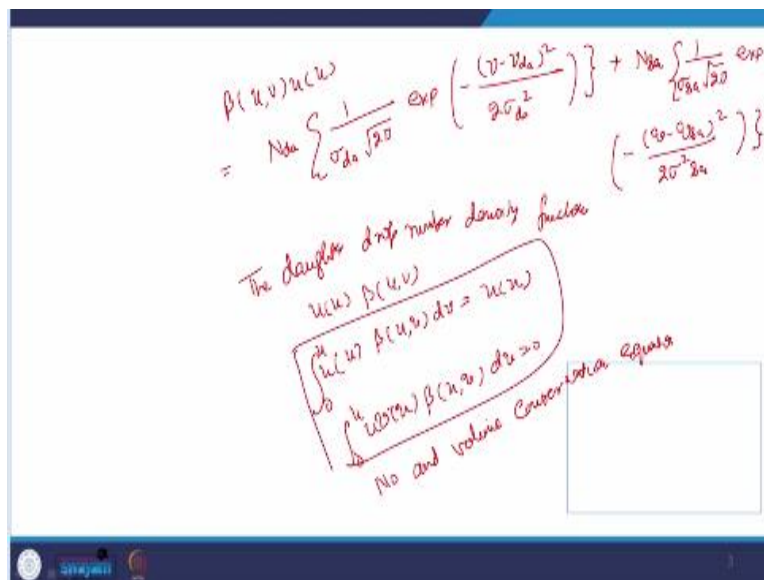 β(u,v)u(u)
= N_da { 1/(σ_da √2σ) exp (-(v-v_da)²/(2σ_da²)) } + N_sa { 1/(σ_sa √2σ) exp (-(v-v_sa)²/(2σ²_sa)) }
The daughter drop number density function
u(u) β(u,v)
∫₀ᵘ u(u) β(u,v) dv = u(u)
∫₀ᵘ uv(u) β(u,v) dv = 0
No and volume conservation equation
swayam
3